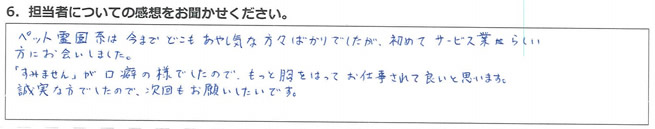 6. 担当者についての感想をお聞かせください。
ペット霊園系は今までどこもあやし気な方々ばかりでしたが、初めてサービス業らしい
方にお会いしました。
「すみません」が口癖の様でしたので、もっと胸をはってお仕事されて良いと思います。
誠実な方でしたので、次回もお願いしたいです。